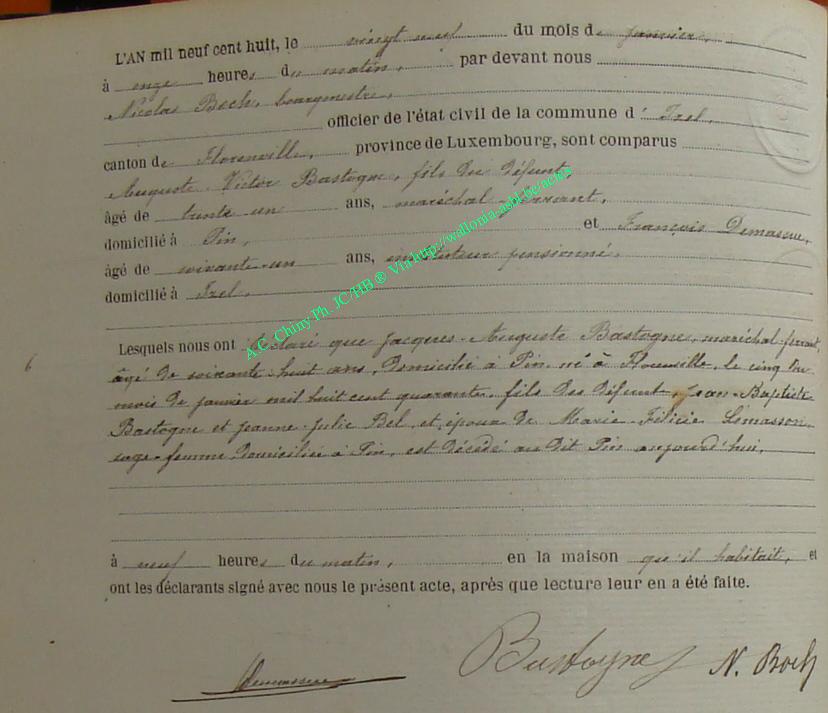 L'AN mil neuf cent huit, le vingt neuf du mois de janvier,
à onze heures du matin, par devant nous
Nicolas Boch, bourgmestre,
officier de l'état civil de la commune d'Izel,
canton de Florenville, province de Luxembourg, sont comparus
Auguste Victor Bastogne, fils du défunt,
âgé de trente-un ans, maréchal-ferrant,
domicilié à Pin, et François Demasure,
âgé de soixante-un ans, instituteur pensionné,
domicilié à Izel,
A.C. Chiny-Ph. JC/HB ® Via http://wallonia-asbl.be/actes
Lesquels nous ont déclaré que Jacques-Auguste Bastogne, maréchal-ferrant,
6
âgé de soixante-huit ans, domicilié à Pin, né à Florenville, le cinq du
mois de janvier mil huit cent quarante, fils des défunts Jean-Baptiste
Bastogne et Jeanne-Julie Bel, et époux de Marie-Félicie Lemasson
sage-femme domiciliée à Pin, est décédé au dit Pin aujourd'hui,
à neuf heures du matin, en la maison qu'il habitait, et
ont les déclarants signé avec nous le présent acte, après que lecture leur en a été faite.
Bastogne N. Boch